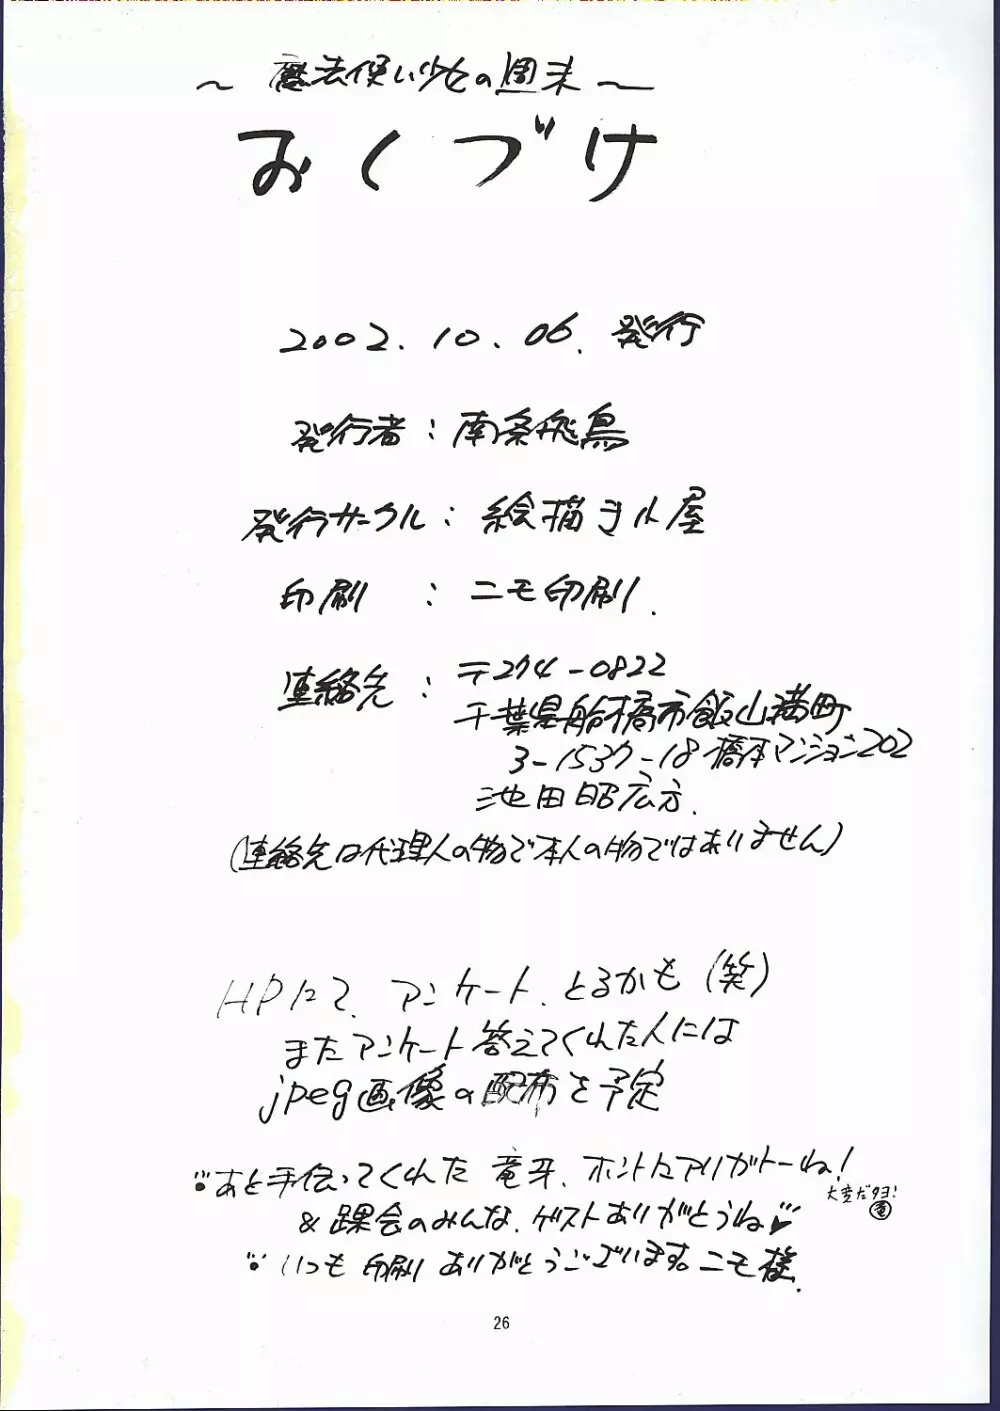 ～魔法使い少女の週末～
おくづけ
2002.10.06.発行
発行者：南条飛鳥
発行サークル：絵描き小屋
印刷：ニモ印刷.
連絡先：〒274-0822
千葉県船橋市飯山満町
3-1537-18橋本マンション202
池田昭広方.
(連絡先は代理人の物で本人の物ではありません)
HPにて、アンケート、とるかも(笑)
またアンケート答えてくれた人には
jpeg画像の配布を予定
あと手伝ってくれた竜牙、ホントにアリガトーね!
大変だタヨ! 竜
&踝会のみんな、ゲストありがとうね
いつも印刷ありがとうございます。ニモ様.
26